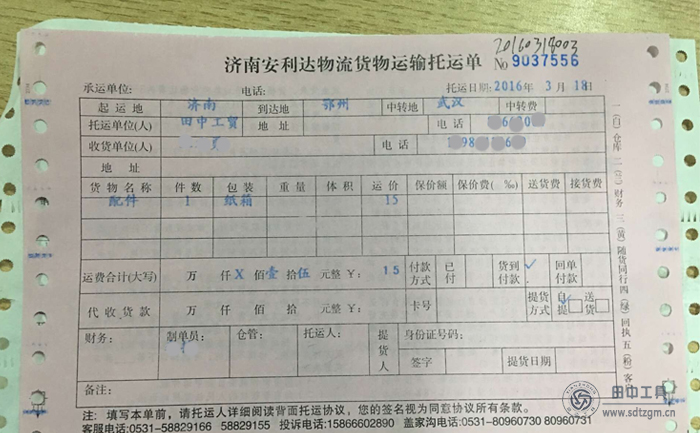 20160318003
济南安利达物流货物运输托运单 No 9037556
承运单位: 电话: 托运日期:2016年 3月 18日
起运地 济南 到达地 鄂州 中转地 武汉 中转费
托运单位(人) 田中工貿 地址 电话
收货单位(人) 电话
地址
货物名称 件数 包装 重量 体积 运价 保价额 保价费(‰) 送货费 接货费
配件 1 纸箱 15
运费合计(大写) 万 仟 X 佰 壹 拾 伍 元整 ¥: 15 付款方式 已付 货到付款 ✓ 回单付款
代收货款 万 仟 佰 拾 元整 ¥: 卡号 提货方式 自提 ✓ 送货
财务: 制单员: 仓管: 托运人: 提货人 身份证号码:
签字 提货日期
备注:
注: 填写本单前,请托运人详细阅读背面托运协议,您的签名视为同意协议所有条款。
客服电话:0531-58829166 58829155 投诉电话:15866602890 盖家沟电话:0531-80960730 80960731
一(白)仓库 二 财务 三(黄)随货同行 四(绿)回执 五(粉)客
田中工具
www.sdtzgm.cn